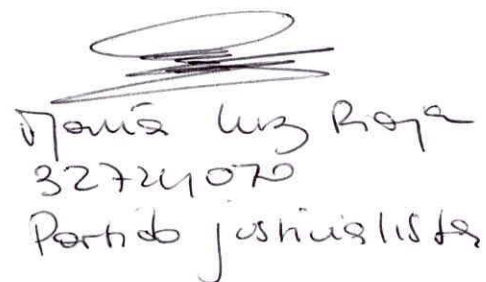 María Luz Rioja
32724070
Partido justicialista